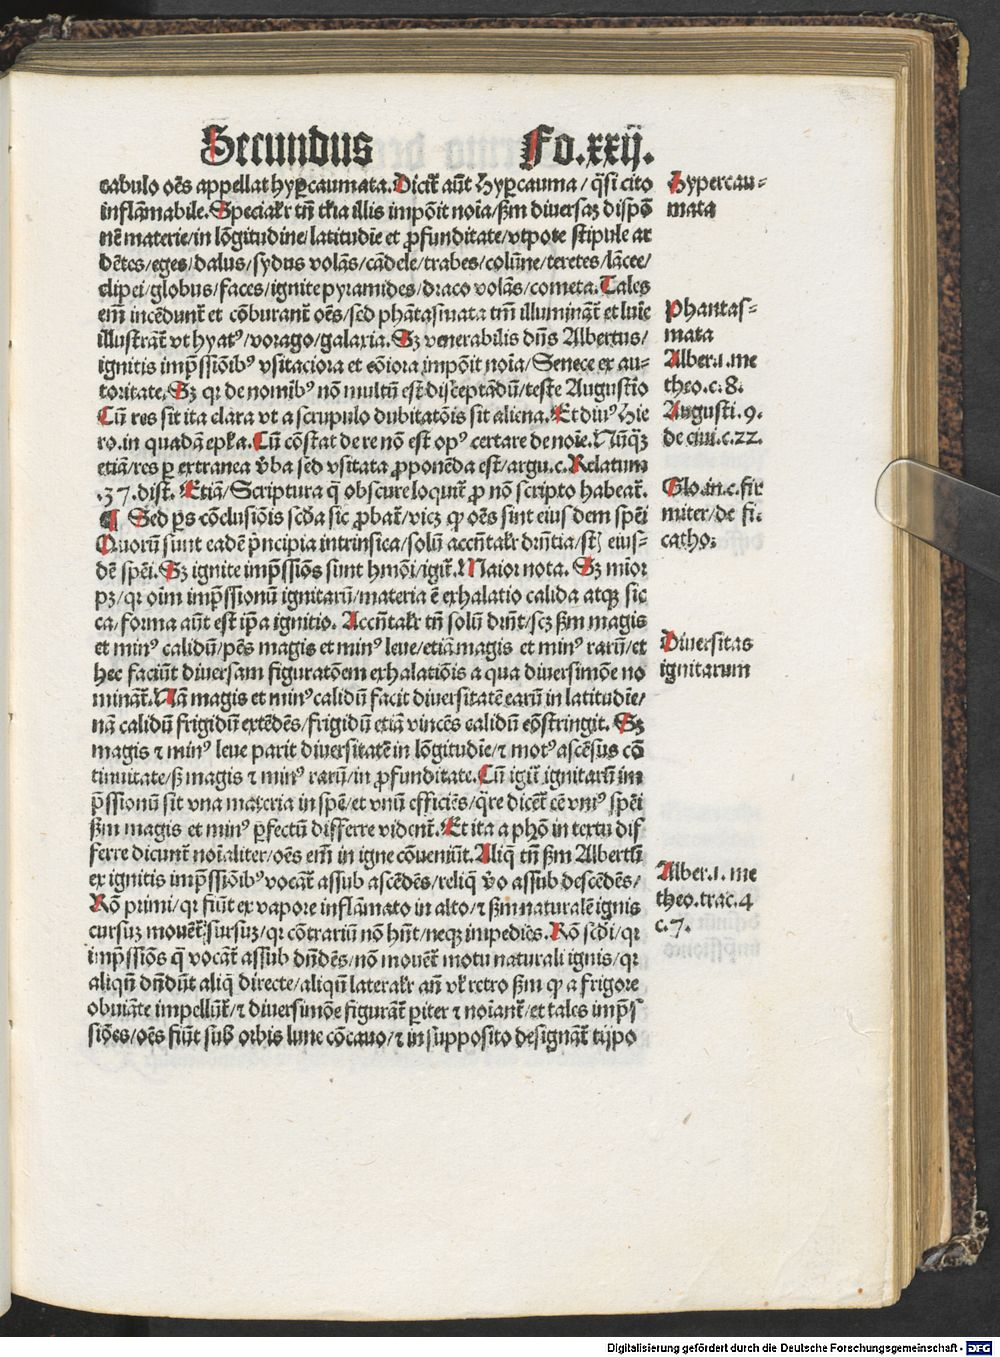 Secundus Fo.xxij.
cabulo oēs appellat hyꝑcaumata. Dicit᷑ aūt hyꝑcauma / q̄si cito
inflāmabile. Specialr̄ tn̄ tʳia illis impōit noīa / ẜm diuersaꝫ dispō
nē materie / in lōgitudine / latitudīe et ꝓfunditate / vtpote stipule ar
dētes / eges / dalus / sydus volās / cādele / trabes / colūne / teretes / lācee /
clipei / globus / faces / ignite pyramides / draco volās / cometa. Tales
em̄ incēdunt᷑ et cōburant᷑ oēs / sed phātasmata tm̄ illuminant᷑ et luīe
illustrāt᷑ vt hyatꝰ / vorago / galaxia. Sꝫ venerabilis dn̄s Albertus /
ignitis imp̄ssiōibꝰ vsitaciora et cōiora impōit noīa / Senece ex au-
toritate. Sꝫ qꝛ de nomībꝰ nō multū est disceptandū / teste Augustīo
Cū res sit ita clara vt a scrupulo dubitatōis sit aliena. Et diuꝰ Hie
ro. in quadā epl̄a. Cū cōstat de re nō est opꝰ certare de noīe. Nūq̄ꝫ
etiā / res ꝑ extranea v̄ba sed vsitata ꝓponēda est / argu.c. Relatum
.37. dist. Etiā / Scriptura q̄ obscure loquit᷑ ꝓ nō scripto habeat᷑.
¶ Sed ꝑs cōclusiōis scd̄a sic ꝓbat᷑ / vicꝫ ꝙ oēs sint eius dem spēi
Quorū sunt eadē pⁱncipia intrinsica / solū accn̄talr̄ dr̄ntia / st̄ eius-
dē spēi. Sꝫ ignite imp̄ssiōs sunt hmōi / igit᷑. Maior nota. Sꝫ mior
pꝫ / qꝛ oīm imp̄ssionū ignitarū / materia ē exhalatio calida atqꝫ sic
ca / forma aūt est ip̄a ignitio. Accn̄talr̄ tn̄ solū dr̄nt / scꝫ ẜm magis
et minꝰ calidū / pēs magis et minꝰ leue / etiā magis et minꝰ rarū / et
hec faciūt diuersam figuratōem exhalatiōis a qua diuersimōe no
minant᷑. Nā magis et minꝰ calidū facit diuersitatē earū in latitudīe /
nā calidū frigidū extēdēs / frigidū etiā vincēs calidū cōstringit. Sꝫ
magis ⁊ minꝰ leue parit diuersitatē in lōgitudīe / ⁊ motꝰ ascēsus cō
tinuitate / ẜ magis ⁊ minꝰ rarū / in ꝓfunditate. Cū igit᷑ ignitarū im
p̄ssionū sit vna materia in spē / et vnū efficiēs / q̄re dicēt᷑ cē vniꝰ spēi
ẜm magis et minꝰ ꝑfectū differre vident᷑. Et ita a phō in tertu dif
ferre dicunt᷑ noīaliter / oēs em̄ in igne cōueniūt. Aliq̄ tn̄ ẜm Albertū
ex ignitis imp̄ssiōibꝰ vocāt᷑ assub ascēdēs / reliq̄ v̄o assub descēdēs /
Rō primi / qꝛ fiūt ex vapore inflāmato in alto / ⁊ ẜm naturalē ignis
cursuꝫ mouēt᷑ / sursuꝫ / qꝛ cōtrariū nō hn̄t / neqꝫ impediēs. Rō scd̄i / qꝛ
imp̄ssiōs q̄ vocāt᷑ assub dn̄dēs / nō mouēt᷑ motu naturali ignis / qꝛ
aliqn̄ dn̄dūt aliq̄ directe / aliqn̄ lateralr̄ aū vl̄ retro ẜm ꝙ a frigore
obuiāte impellūt᷑ / ⁊ diuersimōe figurāt᷑ ꝑiter ⁊ noīant᷑ / et tales imp̄ſ
siōes / oēs fiūt sub orbis lune cōcauo / ⁊ in supposito designāt᷑ tijpo
Hypercau-
mata
Phantas-
mata
Alber.1.me
theo.c.8.
Augusti.9.
de ciui.c.22.
Glo.in.c.fir
miter / de fi.
catho.
Diuersitas
ignitarum
Alber.1.me
theo.trac.4
c.7.
Digitalisierung gefördert durch die Deutsche Forschungsgemeinschaft - DFG